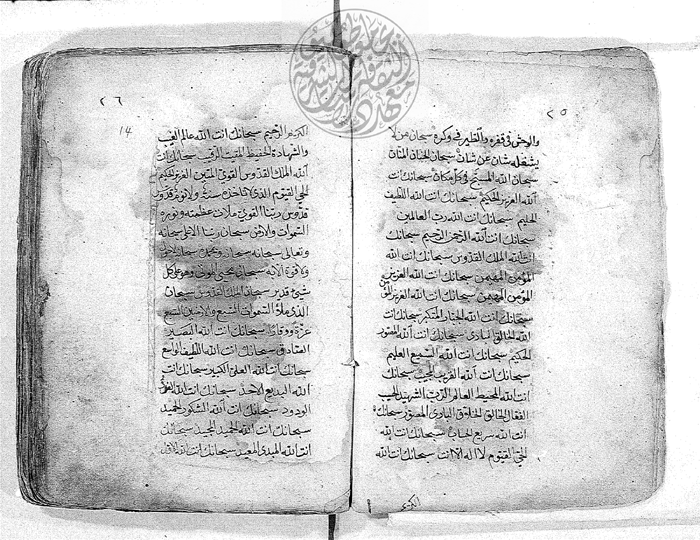 ٢٥
والوحش في قفره والطير في وكره سبحان من لا
يشغله شان عن شان سبحان الحنان المنان
سبحان الله المسبح في كل مكان سبحانك انت
الله العزيز الحكيم سبحانك انت الله اللطيف
الحليم سبحانك انت الله رب العالمين
سبحانك انت الله الرحمن الرحيم سبحانك
انت الله الملك القدوس سبحانك انت الله
المؤمن المهيمن سبحانك انت الله العزيز
المؤمن المهيمن سبحانك انت الله العزيز
سبحانك انت الله الجبار المتكبر سبحانك انت
الله الخالق البادي سبحانك انت الله المصور
الحكيم سبحانك انت الله السميع العليم
سبحانك انت الله القريب المجيب سبحانك
انت الله المحيط العالم الرب الشهيد الحسيب
الخالق البادي المصور سبحانك
انت الله سريع الحساب سبحانك انت الله
الحي القيوم لا اله الا انت سبحانك انت الله
الكريم
٢٦
14
الكريم الرحيم سبحانك انت الله عالم الغيب
والشهادة الحفيظ المقيت الرقيب سبحانك انت
الله الملك القدوس القوي المتين العزيز الحكيم
الحي القيوم الذي لا تاخذه سنة ولا نوم قدوس
قدوس ربنا القوي ملات عظمته ونوره
السموات والارض سبحان ربنا الاعلى سبحانه
وتعالى سبحانه سبحان
ولا قوة الا به سبحان محيي الموت وهو على كل
شيء قدير سبحان الملك القدوس سبحان
الذي ملأ السموات السبع والارضين السبع
عزة ووقارا سبحانك انت الله البصير
الصادق سبحانك انت الله اللطيف الواسع
سبحانك انت الله العلي الكبير سبحانك انت
الله البديع الاحد سبحانك انت الله الغفور
الودود سبحانك انت الله الشكور الحميد
سبحانك انت الله الحميد المجيد سبحانك
انت الله المبدئ المعيد سبحانك انت الله الاول